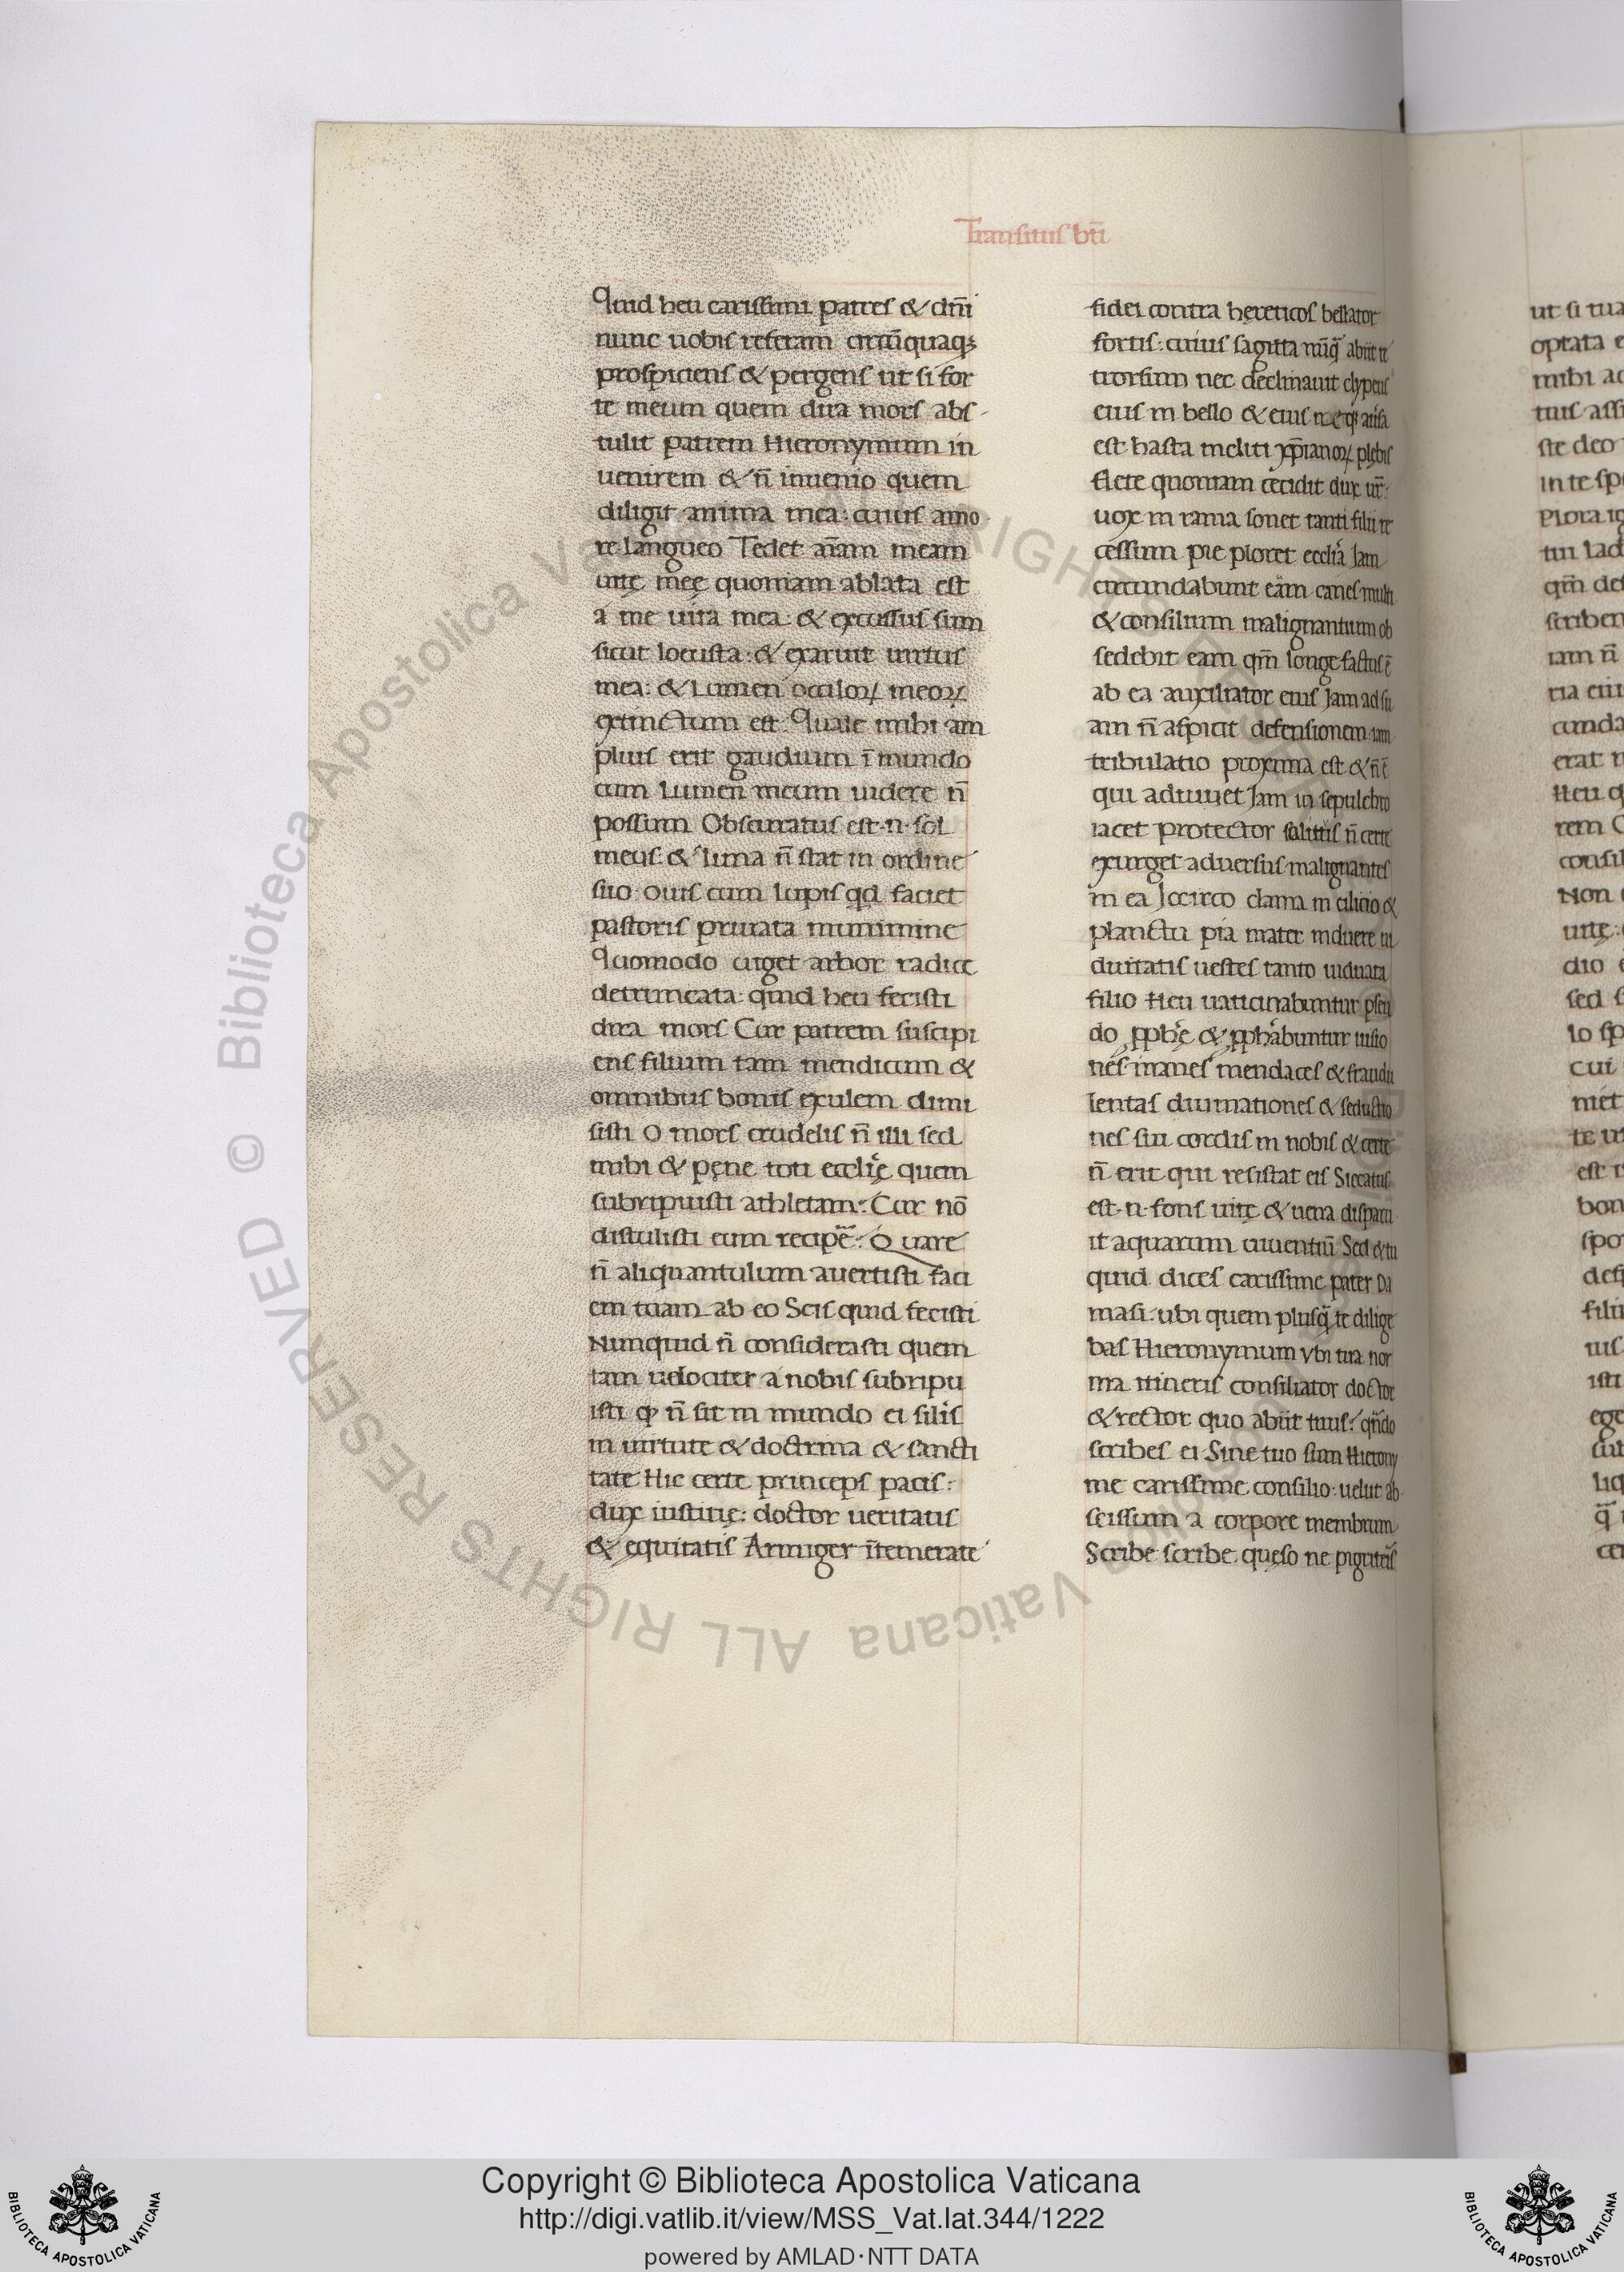 Transitus bti̅
Quid heu carissimi patres & dn̅i
nunc uobis referam circu̅quaq3
prospiciens & pergens ut si for
te meum quem dira mors abs-
tulit patrem Hieronymum in
uenirem & n̅ inuenio quem
diligit anima mea: cuius amo
re langueo Tedet ani̅am meam
uitę męę quoniam ablata est
a me uita mea: & excussus sum
sicut locusta: & exaruit uirtus
mea: & Lumen oculoꝝ meoꝝ
extinctum est Quale mihi am
plius erit gaudium i̅ mundo
cum Lumen meum uidere n̅
possum Obscuratus est ·n· sol
meus: & luna n̅ stat in ordine
suo ouis cum lupis qd̅ faciet
pastoris priuata munimine
Quomodo uiget arbor radice
detruncata: quid heu fecisti
dira mors Cur patrem suscipi
ens filium tam mendicum &
omnibus bonis exulem dimi
sisti O mors crudelis n̅ illi sed
mihi & pęne toti eccl̅ię quem
subripuisti athletam: Cur no̅
distulisti eum recipe̅: Quare
n̅ aliquantulum auertisti faci
em tuam ab eo Scis quid fecisti
Nunquid n̅ considerasti quem
tam uelociter a nobis subripu
isti ꝙ n̅ sit in mundo ei sil̅is
in uirtute & doctrina & sancti
tate Hic certe princeps pacis:
dux iustitię: doctor ueritatis
& equitatis Armiger i̅temerate
fidei contra hęreticos bellator
fortis: cuius sagitta nu̅q̅ abiit re
trorsum nec declinauit clypeus
eius in bello & eius
est hasta incliti xp̅ianoꝝ plebis
flete quoniam cecidit dux ur̅:
uox in rama sonet tanti filii re
cessum pie ploret eccl̅ia Jam
circundabunt eam canes multi
& consilium malignantium ob
sedebit eam qm̅ longe factus e̅
ab ea auxiliator eius Jam ad su
am n̅ aspicit defensionem iam
tribulatio proxima est & n̅ e̅
qui adiuuet Jam in sepulchro
iacet protector salutis n̅ certe
exurget aduersus malignantes
in ea Jccirco clama in cilicio &
planctu pia mater induere ui
duitatis uestes tanto uiduata
filio Heu uaticinabuntur pseu
do ꝓphe̅ & ꝓpha̅buntur uisio
nes inanes mendaces & fraudu
lentas diuinationes & seductio
nes sui cordis in nobis & certe
n̅ erit qui resistat eis Siccatus
est ·n· fons uitę & uena disparu
it aquarum uiuentiu̅ Sed & tu
quid dices carissime pater Da
masi: ubi quem plusq̅ te dilige
bas Hieronymum vbi tua nor
ma itineris consiliator doctor
& rector quo abiit tuus: qn̅do
scribes ei Sine tuo sum Hierony
me carissime consilio: uelut ab
scissum a corpore membrum
Scribe scribe queso ne pigriteris
© Biblioteca Apostolica Vaticana ALL RIGHTS RESERVED
Copyright © Biblioteca Apostolica Vaticana
http://digi.vatlib.it/view/MSS_Vat.lat.344/1222
powered by AMLAD·NTT DATA
BIBLIOTECA APOSTOLICA VATICANA
BIBLIOTECA APOSTOLICA VATICANA